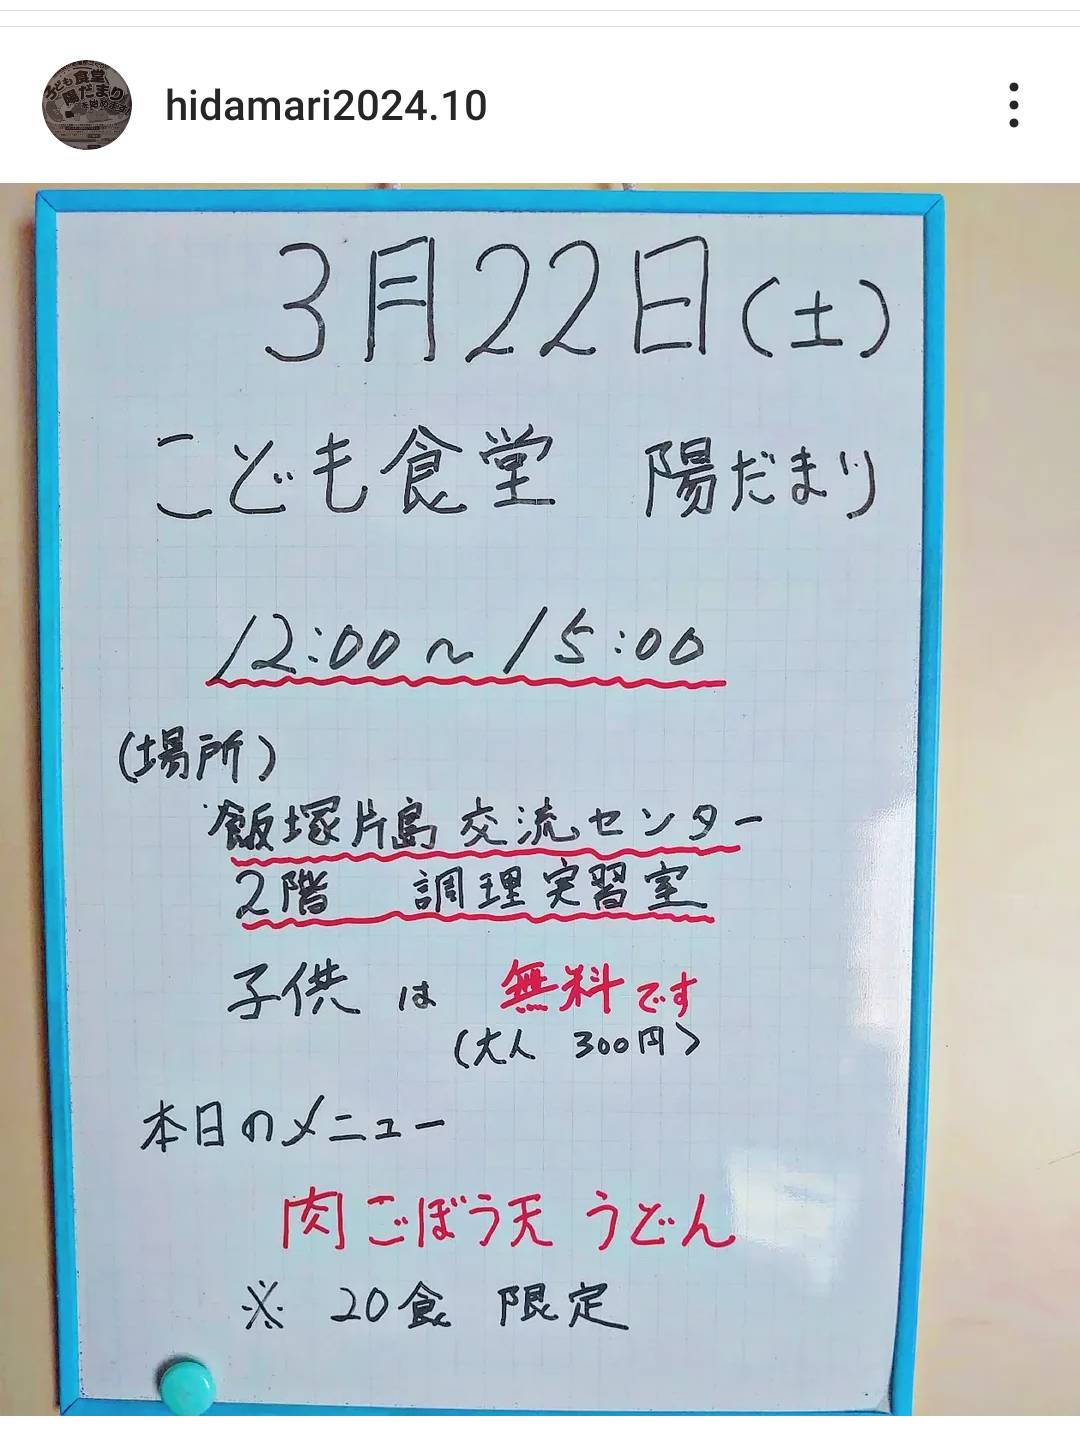 hidamari2024.10
3月22日(土)
こども食堂 陽だまり
12:00~15:00
(場所)
飯塚片島交流センター
2階 調理実習室
子供は 無料です
(大人 300円)
本日のメニュー
肉ごぼう天うどん
※ 20食 限定